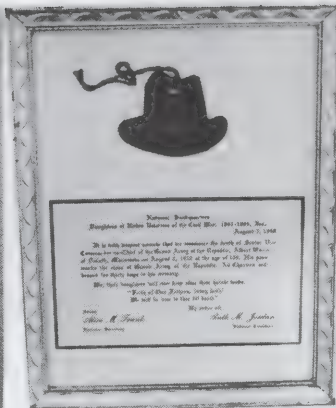 National Headquarters
Daughters of Union Veterans of the Civil War, 1861-1865, Inc.
August 7, 1956
It is with deepest sorrow that we announce the death of Senior Vice
Commander-in-Chief of the Grand Army of the Republic, Albert Woolson
of Duluth, Minnesota on August 2, 1956 at the age of 109. His passing
marks the close of Grand Army of the Republic. All Charters will
be draped for thirty days in his memory.
We, their daughters will now keep alive their heroic deeds.
"Faith of Our Fathers, living still
We will be true to thee till death"
By order of:
National Secretary
National President